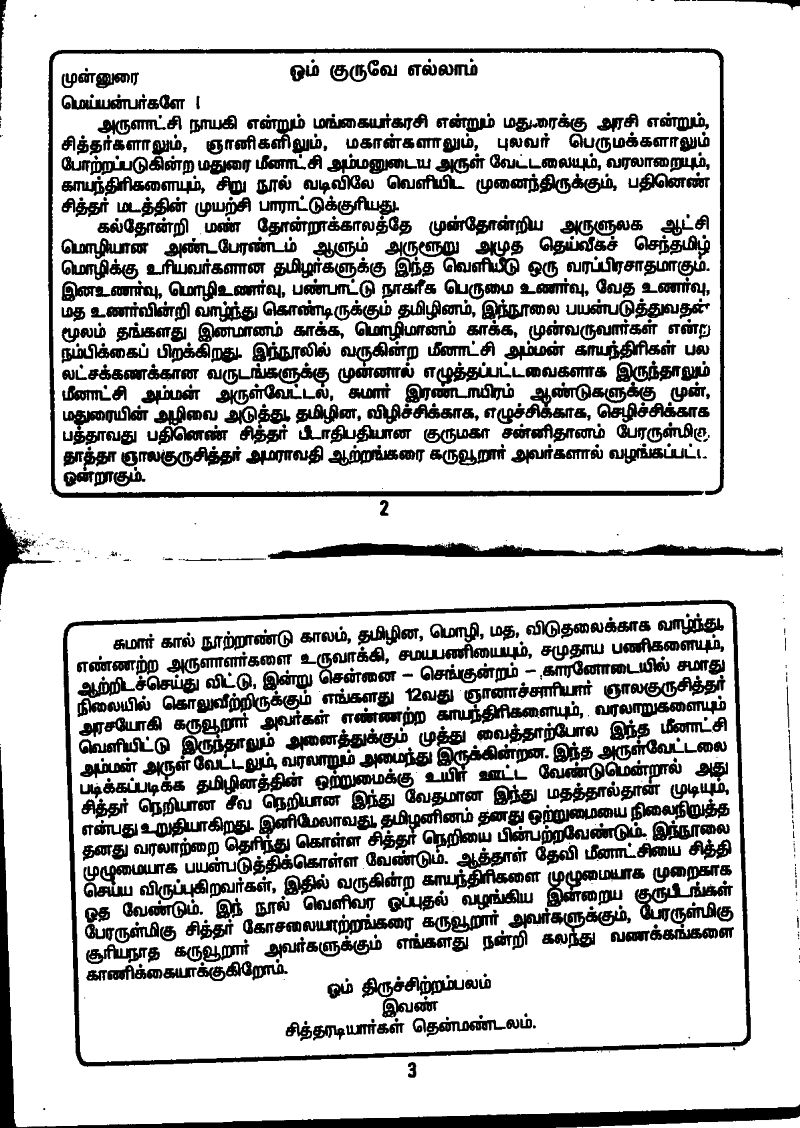 ஓம் குருவே எல்லாம்
முன்னுரை
மெய்யன்பர்களே !
அருளாட்சி நாயகி என்றும் மங்கையர்கரசி என்றும் மதுரைக்கு அரசி என்றும்,
சித்தர்களாலும், ஞானிகளிலும், மகான்களாலும், புலவர் பெருமக்களாலும்
போற்றப்படுகின்ற மதுரை மீனாட்சி அம்மனுடைய அருள் வேட்டலையும், வரலாறையும்,
காயந்திரிகளையும், சிறு நூல் வடிவிலே வெளியிட முனைந்திருக்கும், பதினெண்
சித்தர் மடத்தின் முயற்சி பாராட்டுக்குரியது.
கல்தோன்றி மண் தோன்றாக்காலத்தே முன்தோன்றிய அருளுலக ஆட்சி
மொழியான அண்டபேரண்டம் ஆளும் அருளூறு அமுத தெய்வீகச் செந்தமிழ்
மொழிக்கு உரியவர்களான தமிழர்களுக்கு இந்த வெளியீடு ஒரு வரப்பிரசாதமாகும்.
இனஉணர்வு, மொழிஉணர்வு, பண்பாட்டு நாகரீக பெருமை உணர்வு, வேத உணர்வு,
மத உணர்வின்றி வாழ்ந்து கொண்டிருக்கும் தமிழினம், இந்நூலை பயன்படுத்துவதன்
மூலம் தங்களது இனமானம் காக்க, மொழிமானம் காக்க, முன்வருவார்கள் என்ற
நம்பிக்கைப் பிறக்கிறது. இந்நூலில் வருகின்ற மீனாட்சி அம்மன் காயந்திரிகள் பல
லட்சக்கணக்கான வருடங்களுக்கு முன்னால் எழுத்தப்பட்டவைகளாக இருந்தாலும்
மீனாட்சி அம்மன் அருள்வேட்டல், சுமார் இரண்டாயிரம் ஆண்டுகளுக்கு முன்,
மதுரையின் அழிவை அடுத்து, தமிழின, விழிச்சிக்காக, எழுச்சிக்காக, செழிச்சிக்காக
பத்தாவது பதினெண் சித்தர் பீடாதிபதியான குருமகா சன்னிதானம் பேரருள்மிகு
தாத்தா ஞாலகுருசித்தர் அமராவதி ஆற்றங்கரை கருவூறார் அவர்களால் வழங்கப்பட்ட
ஒன்றாகும்.
2
சுமார் கால் நூற்றாண்டு காலம், தமிழின, மொழி, மத, விடுதலைக்காக வாழ்ந்து,
எண்ணற்ற அருளாளர்களை உருவாக்கி, சமயபணியையும், சமுதாய பணிகளையும்,
ஆற்றிடச்செய்து விட்டு, இன்று சென்னை – செங்குன்றம் – காரனோடையில் சமாது
நிலையில் கொலுவீற்றிருக்கும் எங்களது 12வது ஞானாச்சாரியார் ஞாலகுருசித்தர்
அரசயோகி கருவூறார் அவர்கள் எண்ணற்ற காயந்திரிகளையும், வரலாறுகளையும்
வெளியிட்டு இருந்தாலும் அனைத்துக்கும் முத்து வைத்தாற்போல இந்த மீனாட்சி
அம்மன் அருள் வேட்டலும், வரலாறும் அமைந்து இருக்கின்றன. இந்த அருள்வேட்டலை
படிக்கப்படிக்க தமிழினத்தின் ஒற்றுமைக்கு உயிர் ஊட்ட வேண்டுமென்றால் அது
சித்தர் நெறியான சீவ நெறியான இந்து வேதமான இந்து மதத்தால்தான் முடியும்,
என்பது உறுதியாகிறது. இனிமேலாவது, தமிழனினம் தனது ஒற்றுமையை நிலைநிறுத்த
தனது வரலாற்றை தெரிந்து கொள்ள சித்தர் நெறியை பின்பற்றவேண்டும். இந்நூலை
முழுமையாக பயன்படுத்திக்கொள்ள வேண்டும். ஆத்தாள் தேவி மீனாட்சியை சித்தி
செய்ய விருப்புகிறவர்கள், இதில் வருகின்ற காயந்திரிகளை முழுமையாக முறைகாக
ஓத வேண்டும். இந் நூல் வெளிவர ஒப்புதல் வழங்கிய இன்றைய குருபீடங்கள்
பேரருள்மிகு சித்தர் கோசலையாற்றங்கரை கருவூறார் அவர்களுக்கும், பேரருள்மிகு
சூரியநாத கருவூறார் அவர்களுக்கும் எங்களது நன்றி கலந்து வணக்கங்களை
காணிக்கையாக்குகிறோம்.
ஓம் திருச்சிற்றம்பலம்
இவண்
சித்தரடியார்கள் தென்மண்டலம்.
3